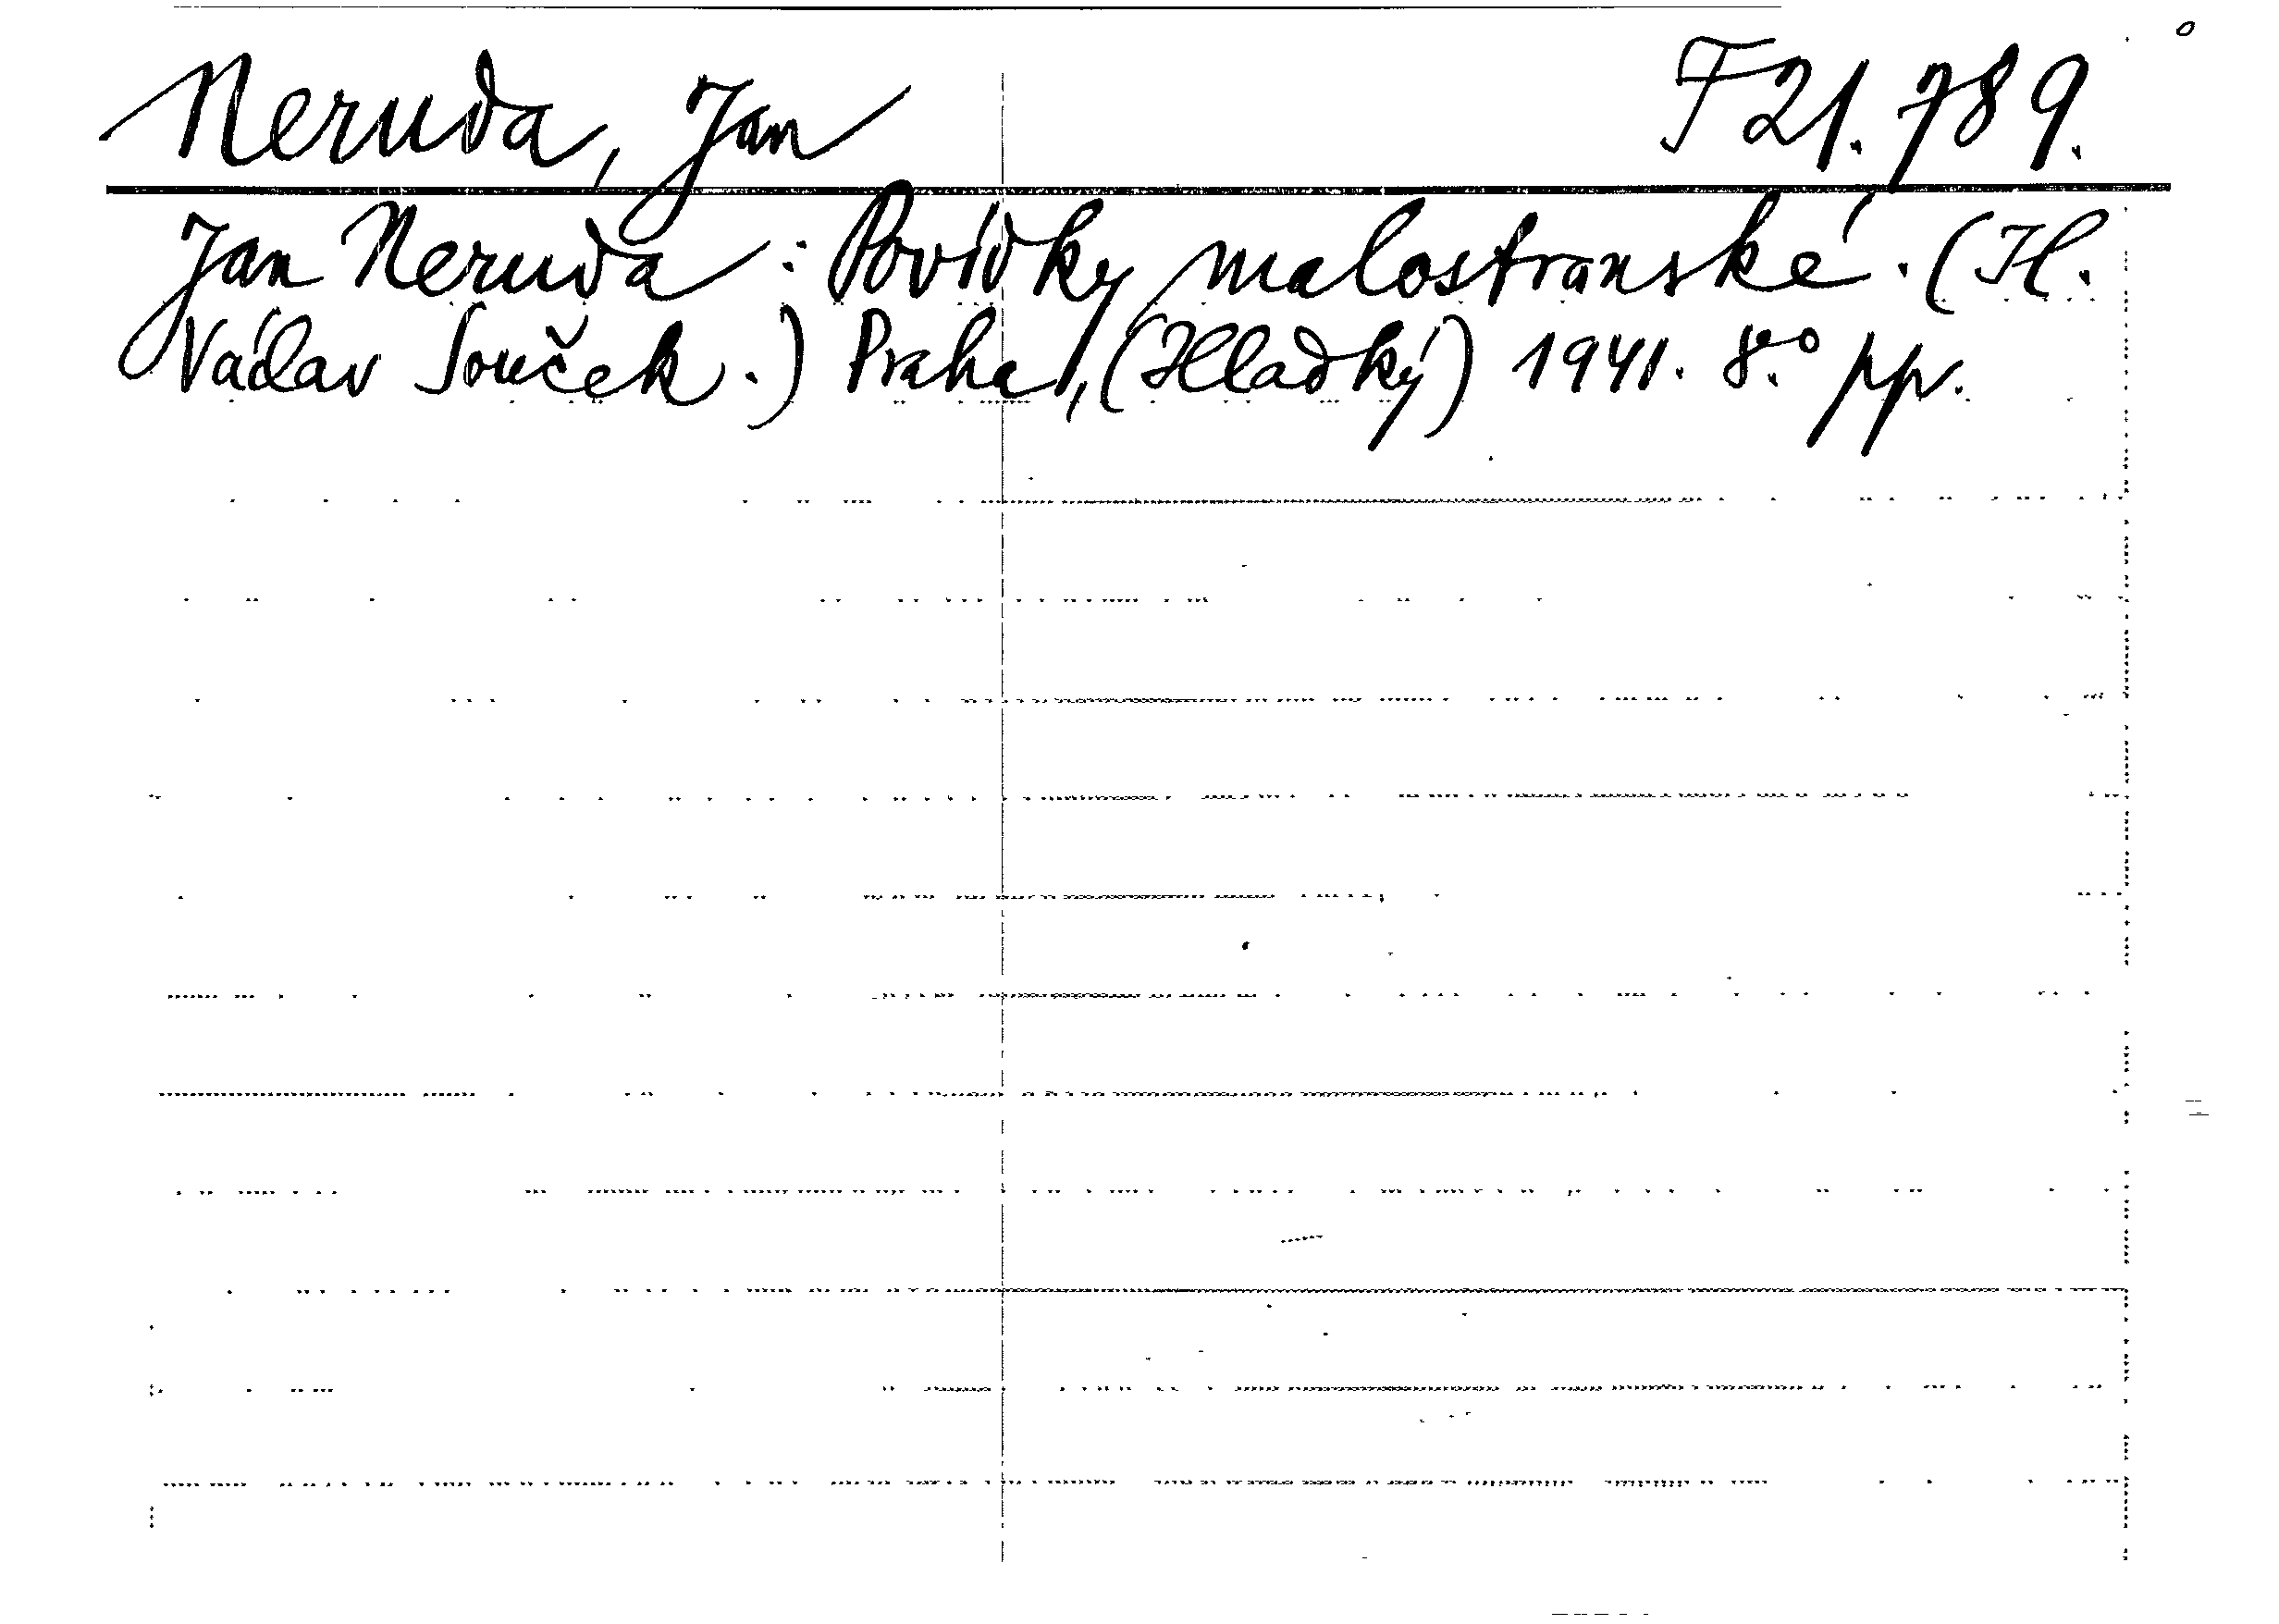 Neruda, Jan F 21.789.
Jan Neruda: Povídky malostranské. (Il.
Václav Souček.) Praha, (Hladký) 1941. 8.° pp.